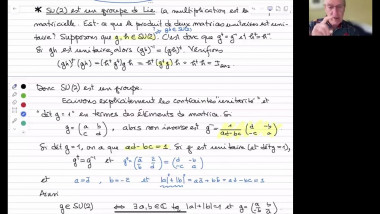 * SU(2) est un groupe de Lie (la multiplication est la
matricielle. Est-ce que le produit de deux matrices unitaires est uni-
gh ∈ SU(2)
taire? Supposons que g, h ∈ SU(2). C'est donc que g† = g⁻¹ et h† = h⁻¹.
Si gh est unitaire, alors (gh)⁻¹ = (gh)†. Vérifions
(gh)†(gh) = (h†g†)gh = h†(g†g)h = h†h = I₂ₓ₂.
Donc SU(2) est un groupe.
Écrivons explicitement les contraintes "unitarité" et
"dét g = 1" en termes des éléments de matrice. Si
g = (a b / c d), alors son inverse est g⁻¹ = 1/(ad-bc) (d -b / -c a)
Si dét g = 1, on a que ad - bc = 1. Si g est unitaire (et dét g = 1),
g† = g⁻¹ et
et |a|² + |b|² =
Ainsi
g ∈ SU(2) ⟺ ∃ a, b ∈ ℂ tq |a|² + |b|² = 1 et g =